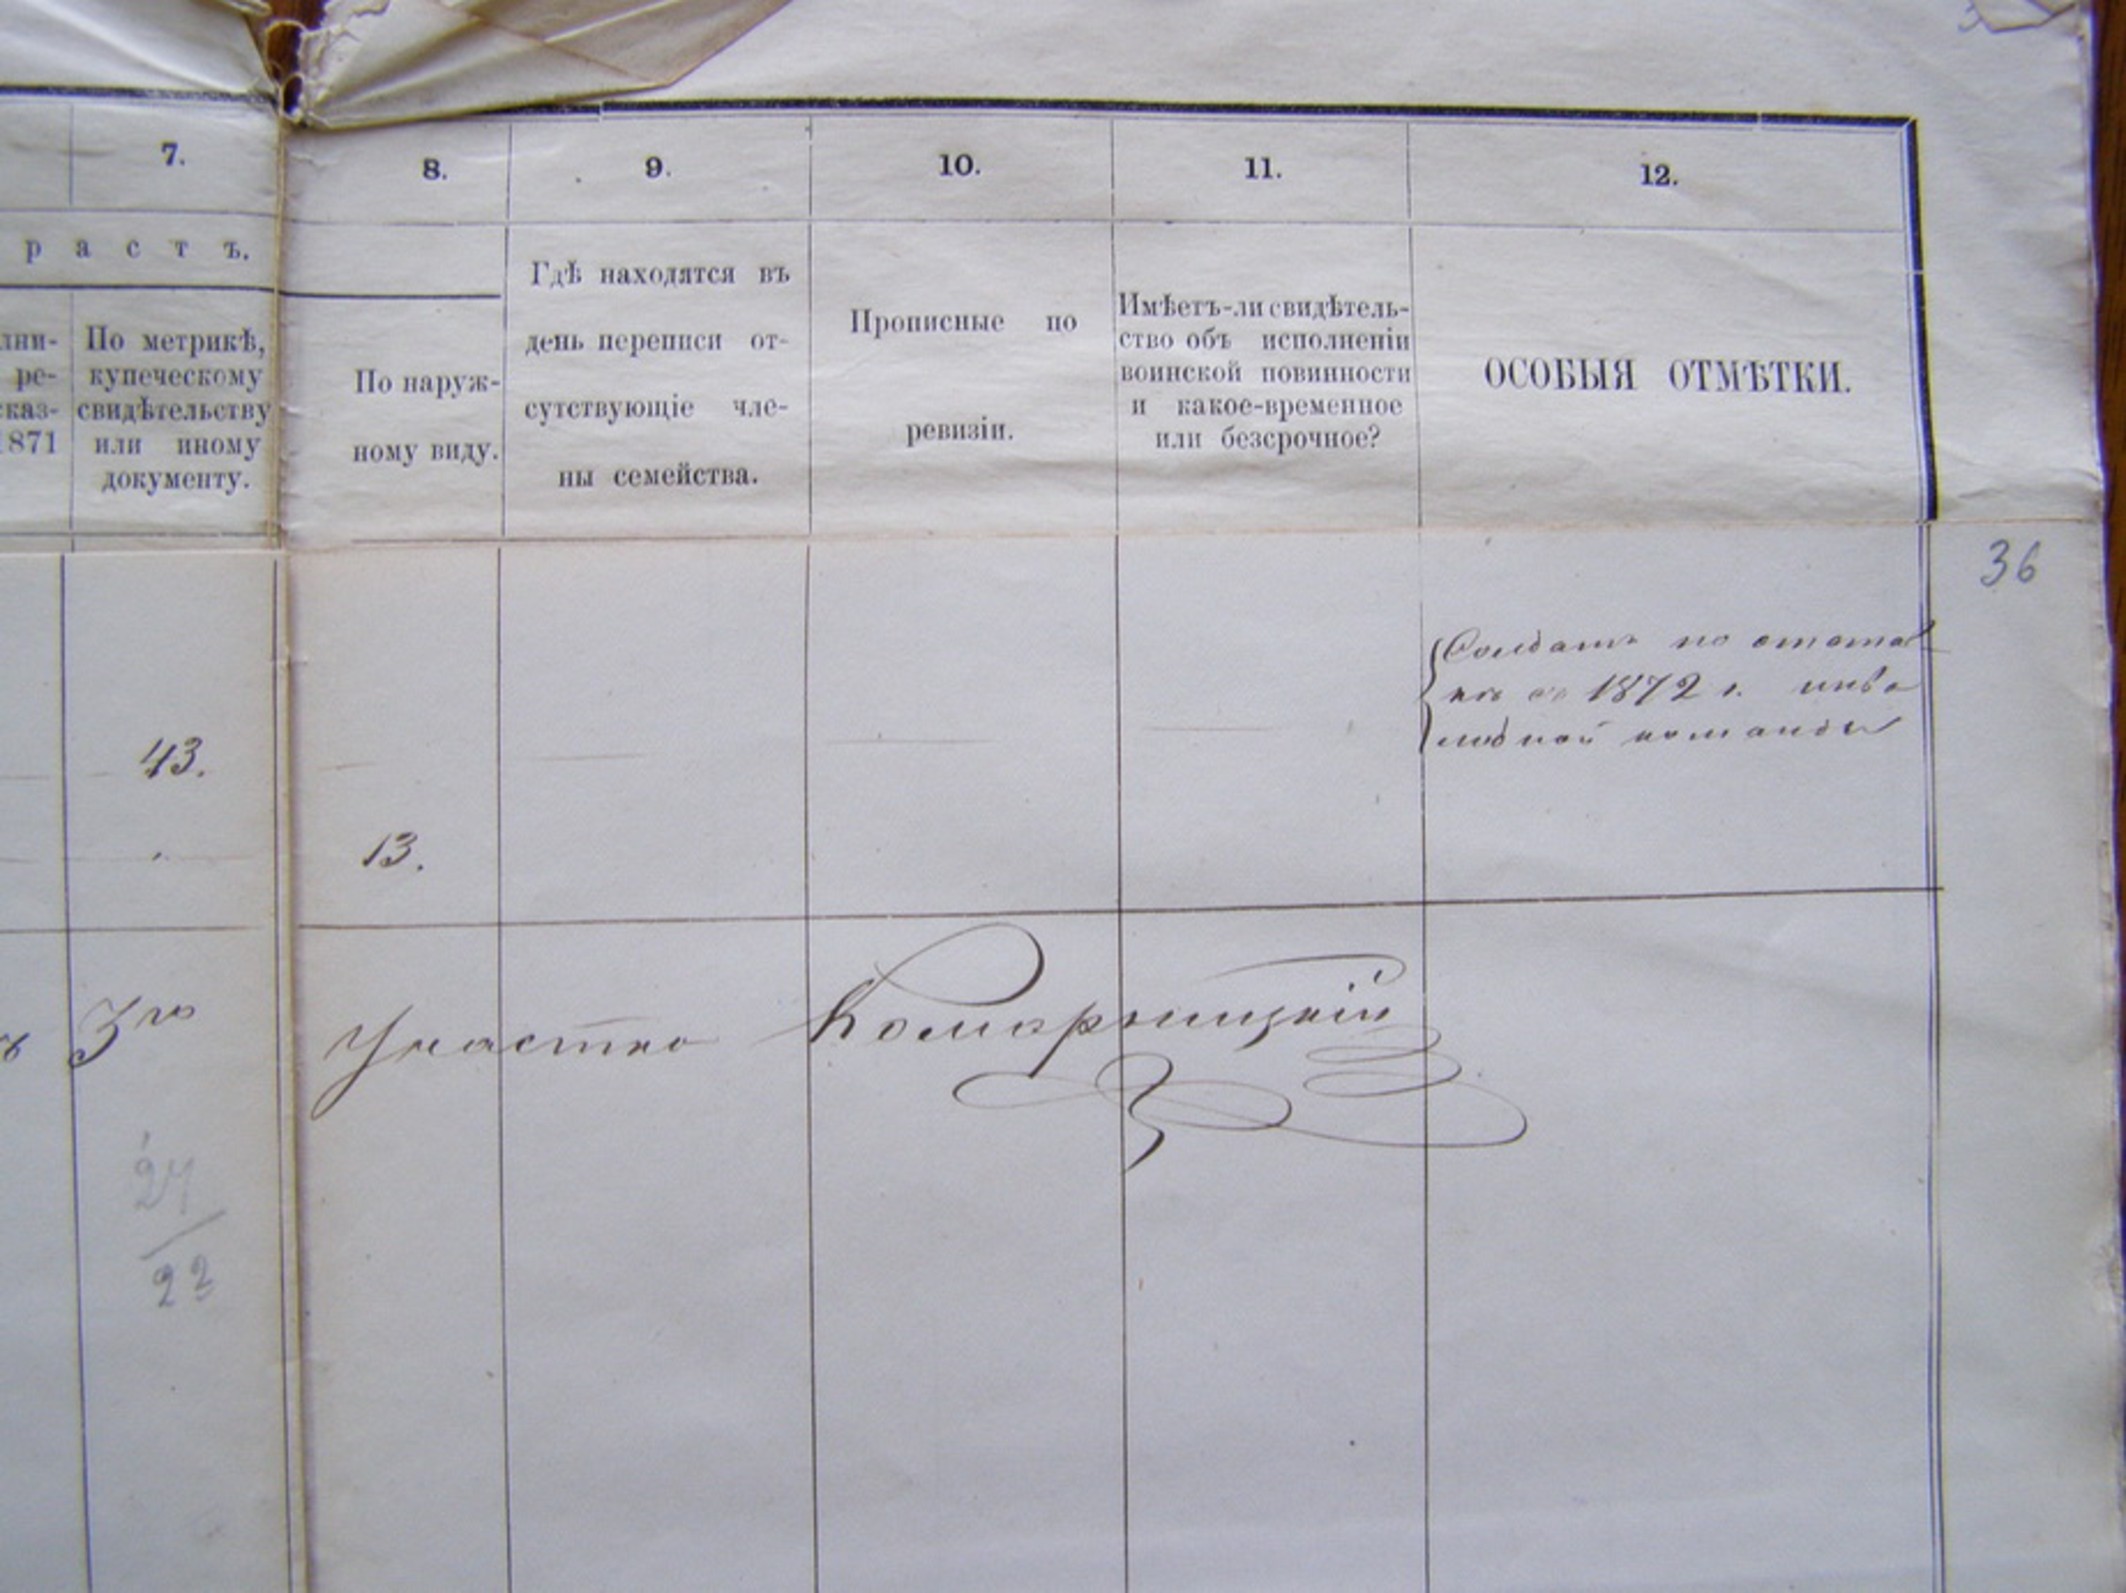 7.
8.
9.
10.
11.
12.
р а с т ъ.
лни-
ре-
сказ-
1871
По метрикѣ,
купеческому
свидѣтельству
или иному
документу.
По наруж-
ному виду.
Гдѣ находятся въ
день переписи от-
сутствующіе чле-
ны семейства.
Прописные по
ревизіи.
Имѣетъ-ли свидѣтель-
ство объ исполненіи
воинской повинности
и какое-временное
или безсрочное?
ОСОБЫЯ ОТМѢТКИ.
36
Солдатъ по
1872 г. инва
лидной команды
43.
13.
3го Участка Комарницкій
24
22